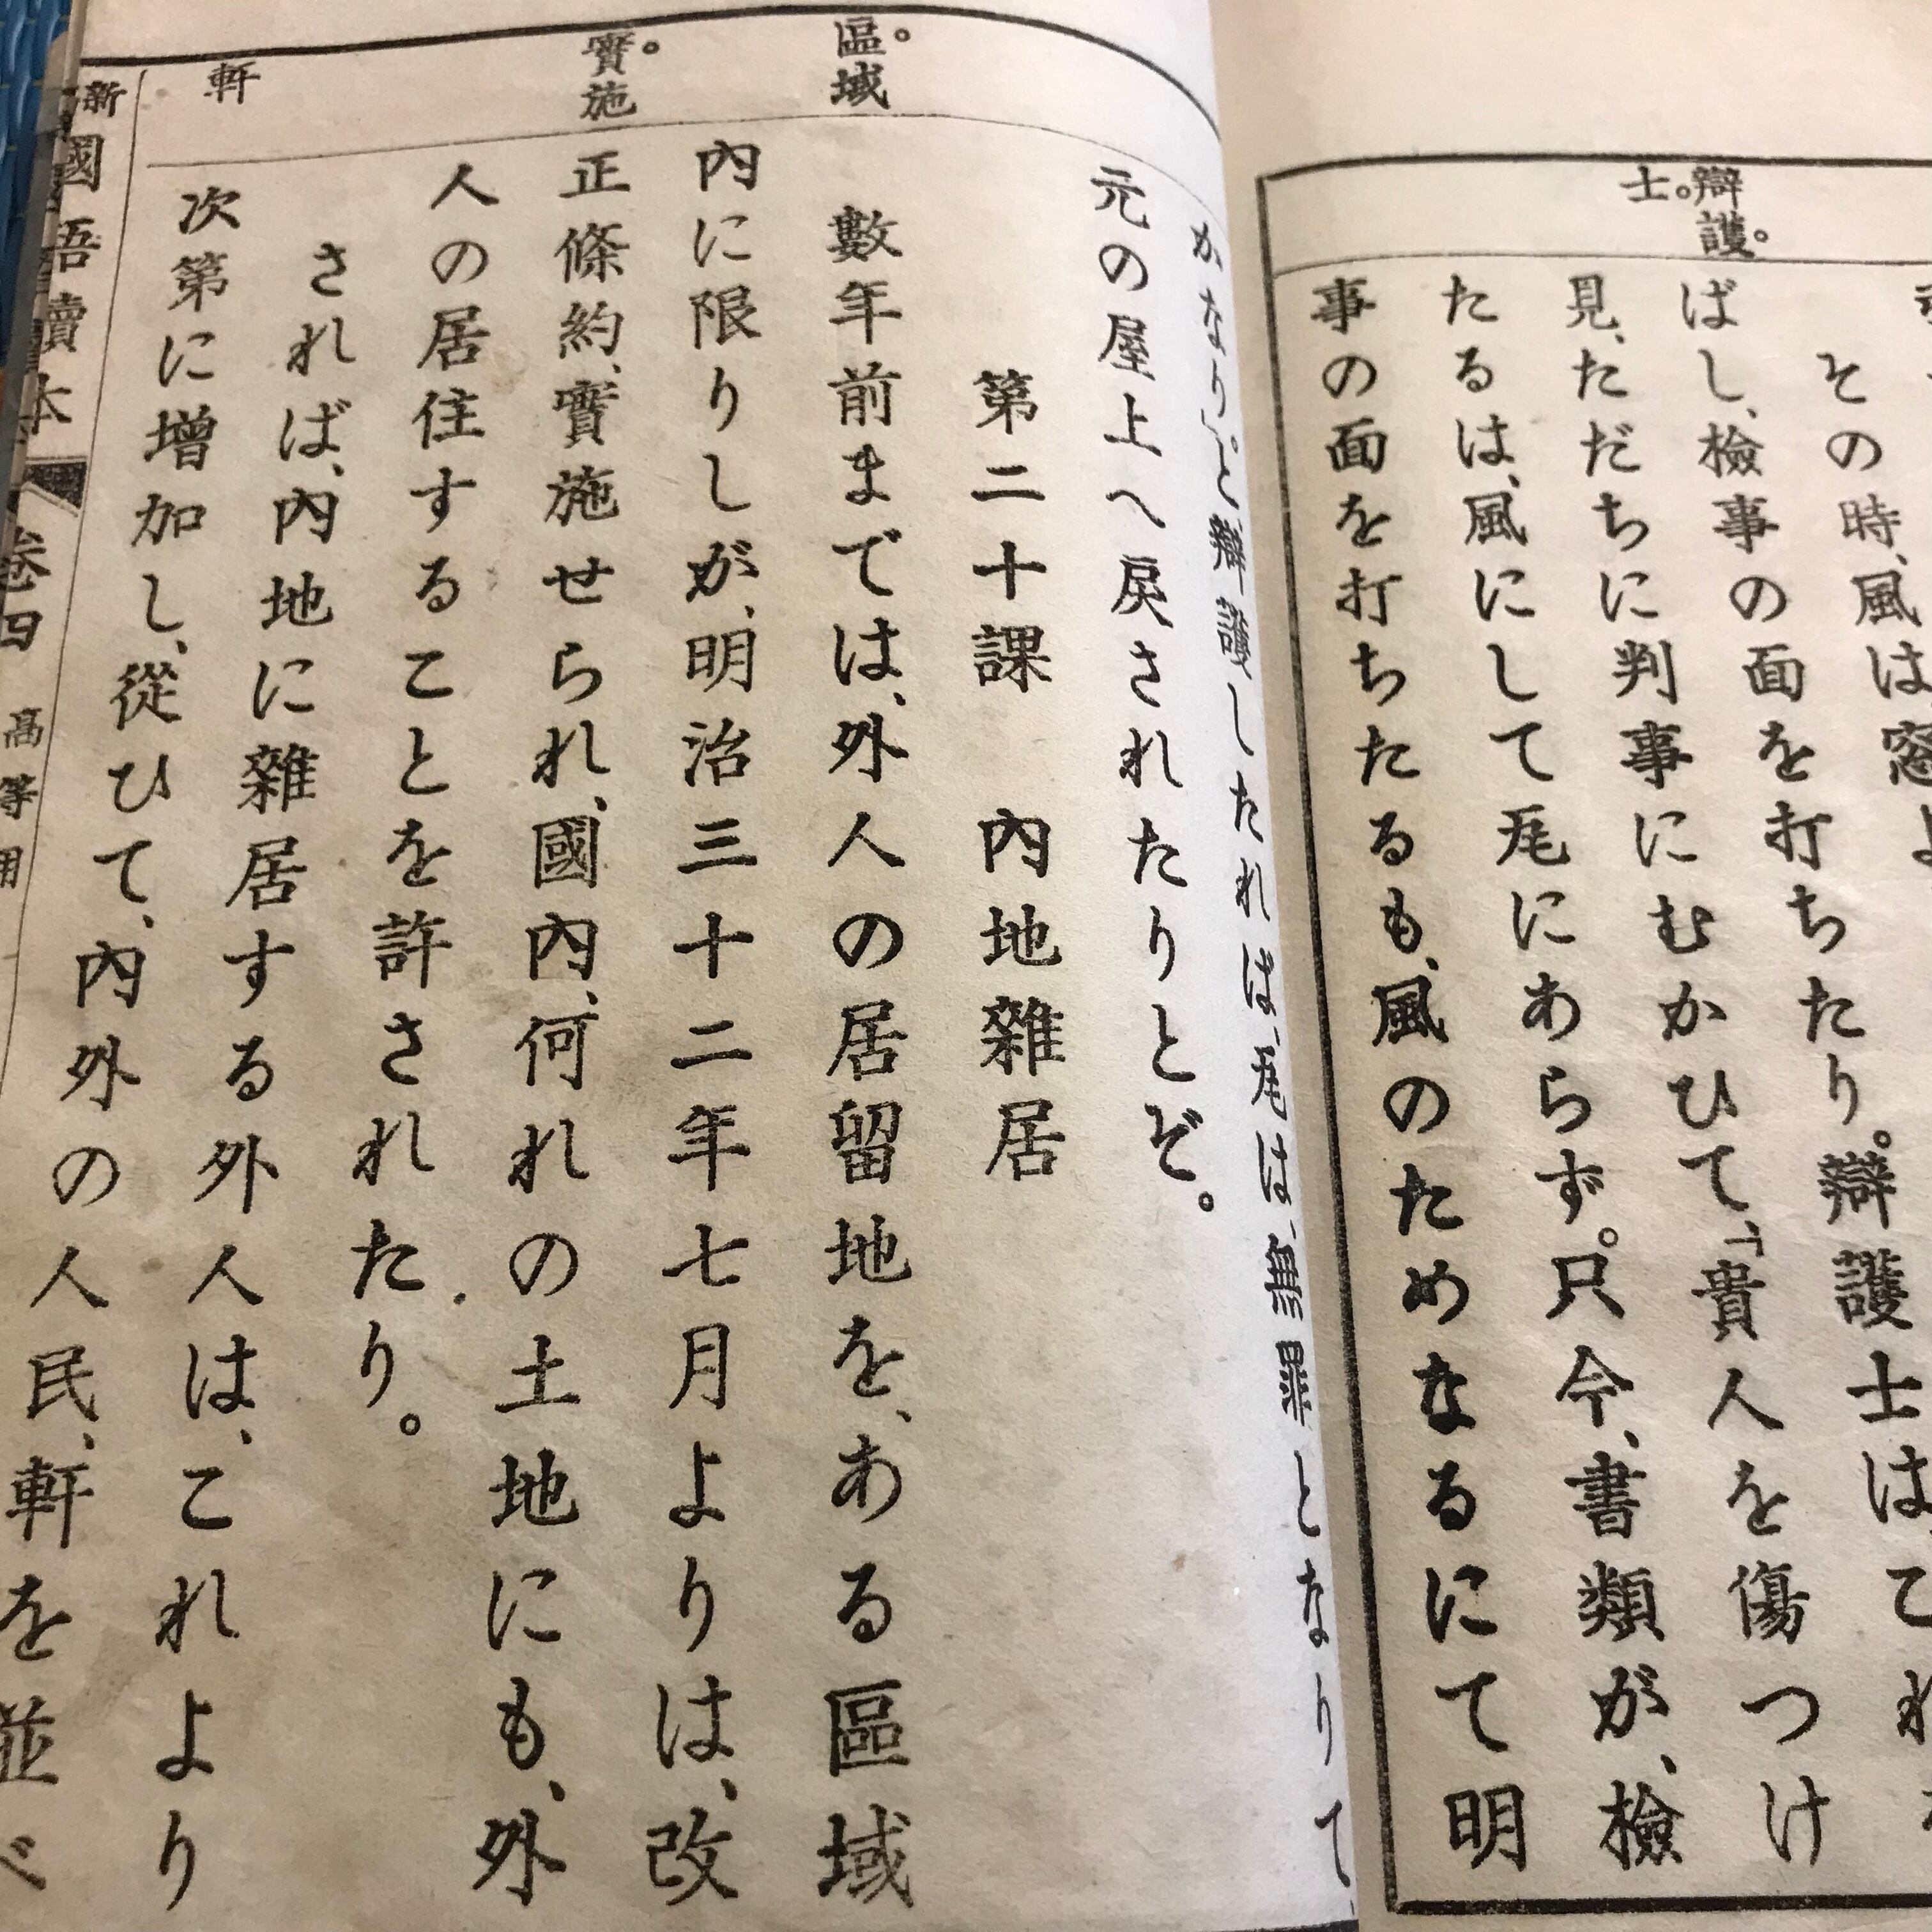 辯護。
士。
その時、風は窓よ
り
ばし、檢事の面を打ちたり。辯護士はこれ
見、ただちに判事にむかひて、「貴人を傷つけ
たるは、風にして瓦にあらず。只今、書類が、檢
事の面を打ちたるも、風のためなるにて明
區。域
實。施
軒
かなり」と辯護したれば、瓦は、無罪となりて、
元の屋上へ戾されたりとぞ。
第二十課 內地雜居
數年前までは、外人の居留地を、ある區域
內に限りしが、明治三十二年七月よりは、改
正條約、實施せられ、國內、何れの土地にも、外
人の居住することを許されたり。
されば、內地に雜居する外人は、これより
次第に增加し、從ひて、內外の人民、軒を並べ
新國語讀本 卷四 高等用